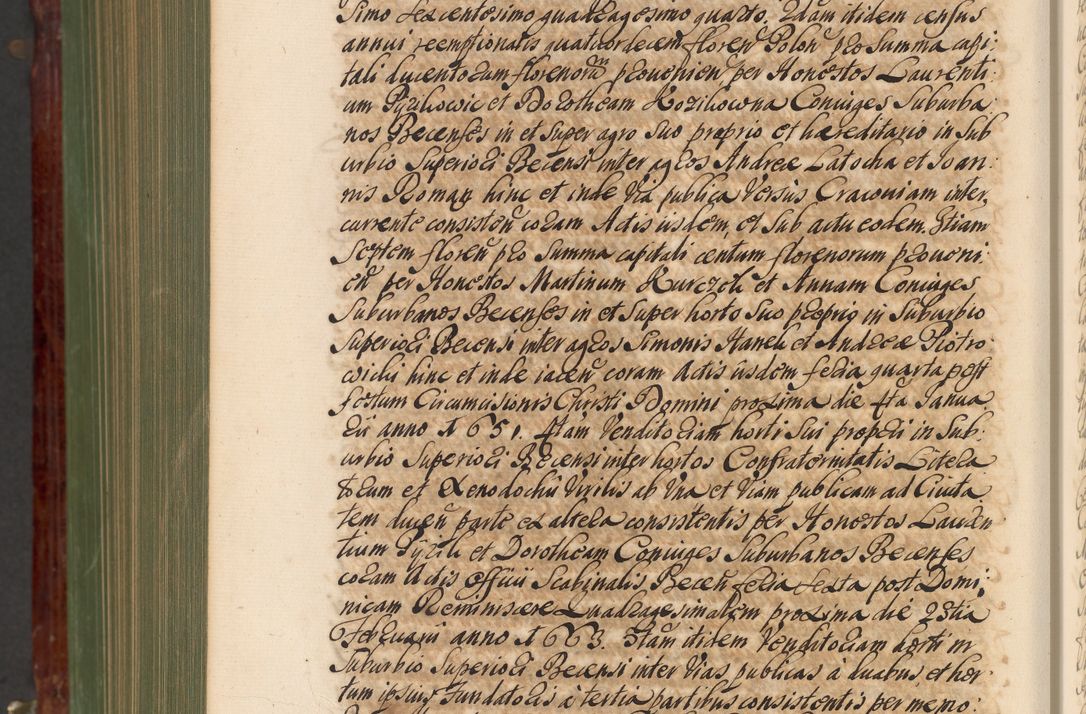 simo sexcentesimo quadragesimo quarto. Itam itidem census
annui reemptionalis quatuordecem floren Polon pro summa capi:
tali ducentorum florenorum provenien per Honestos Laurenti:
um Pyzikowic et Dorotheam Kozikowna Coniuges Suburba:
nos Becenses in et super agro suo proprio et hæreditario in sub
urbio Superiori Becensi inter agros Andreæ Latocha et Joan:
nis Roman hinc et inde via publica versus Cracoviam inter,
currente consisten coram Actis iisdem, et sub actu eodem. Itiam
septem floren pro summa capitali centum florenorum proveni:
en per Honestos Martinum Kurczek et Annam Coniuges
Suburbanos Becenses in et super horto suo proprio in Suburbio
Superiori Becensi inter agros Simonis Hanek et Andreæ Piotro:
wicki hinc et inde iacen coram Actis iisdem feria quarta post
festum Circumcisionis Christi Domini proxima die 4ta Janua
rii anno 1651. Itam venditoriam horti sui proprii in Sub:
urbio Superiori Becensi inter hortos Confraternitatis Litera
torum et Xenodochii Virilis ab una et viam publicam ad Civita
tem ducen parte ex altera consistentis per Honestos Lauren
tium Pyzik et Dorotheam Coniuges Suburbanos Becenses
coram Actis officii Scabinalis Becen feria sexta post Domi:
nicam Reminiscere Quadragesimalem proxima die 23tia
Februarii anno 1663. Itam itidem venditoriam horti in
Suburbio Superiori Becensi inter vias publicas à duabus, et hor:
tum ipsius fundatoris à tertia partibus consistentis per memo: